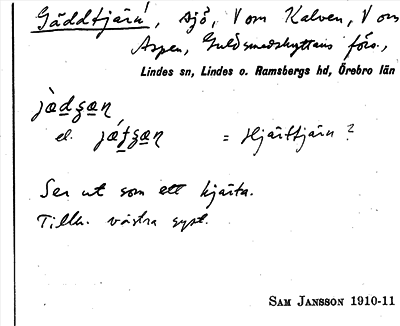 Gäddtjärn, sjö, V om Kalven, V om
Aspen, Guldsmedshyttans förs.,
Lindes sn, Lindes o. Ramsbergs hd, Örebro län
el. = Hjärttjärn?
Ser ut som ett hjärta.
Tillh. västra syst.
SAM JANSSON 1910-11